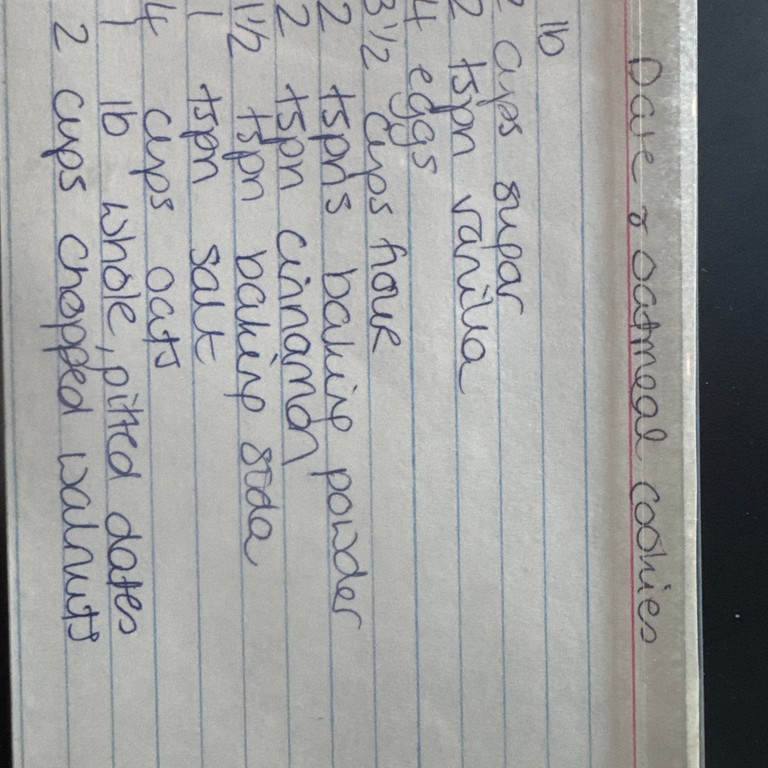 Date & oatmeal cookies
lb
2 cups sugar
2 tspn vanilla
4 eggs
3 1/2 cups flour
2 tspns baking powder
2 tspn cinnamon
1 1/2 tspn baking soda
1 tspn salt
4 cups oats
1 lb whole, pitted dates
2 cups chopped walnuts